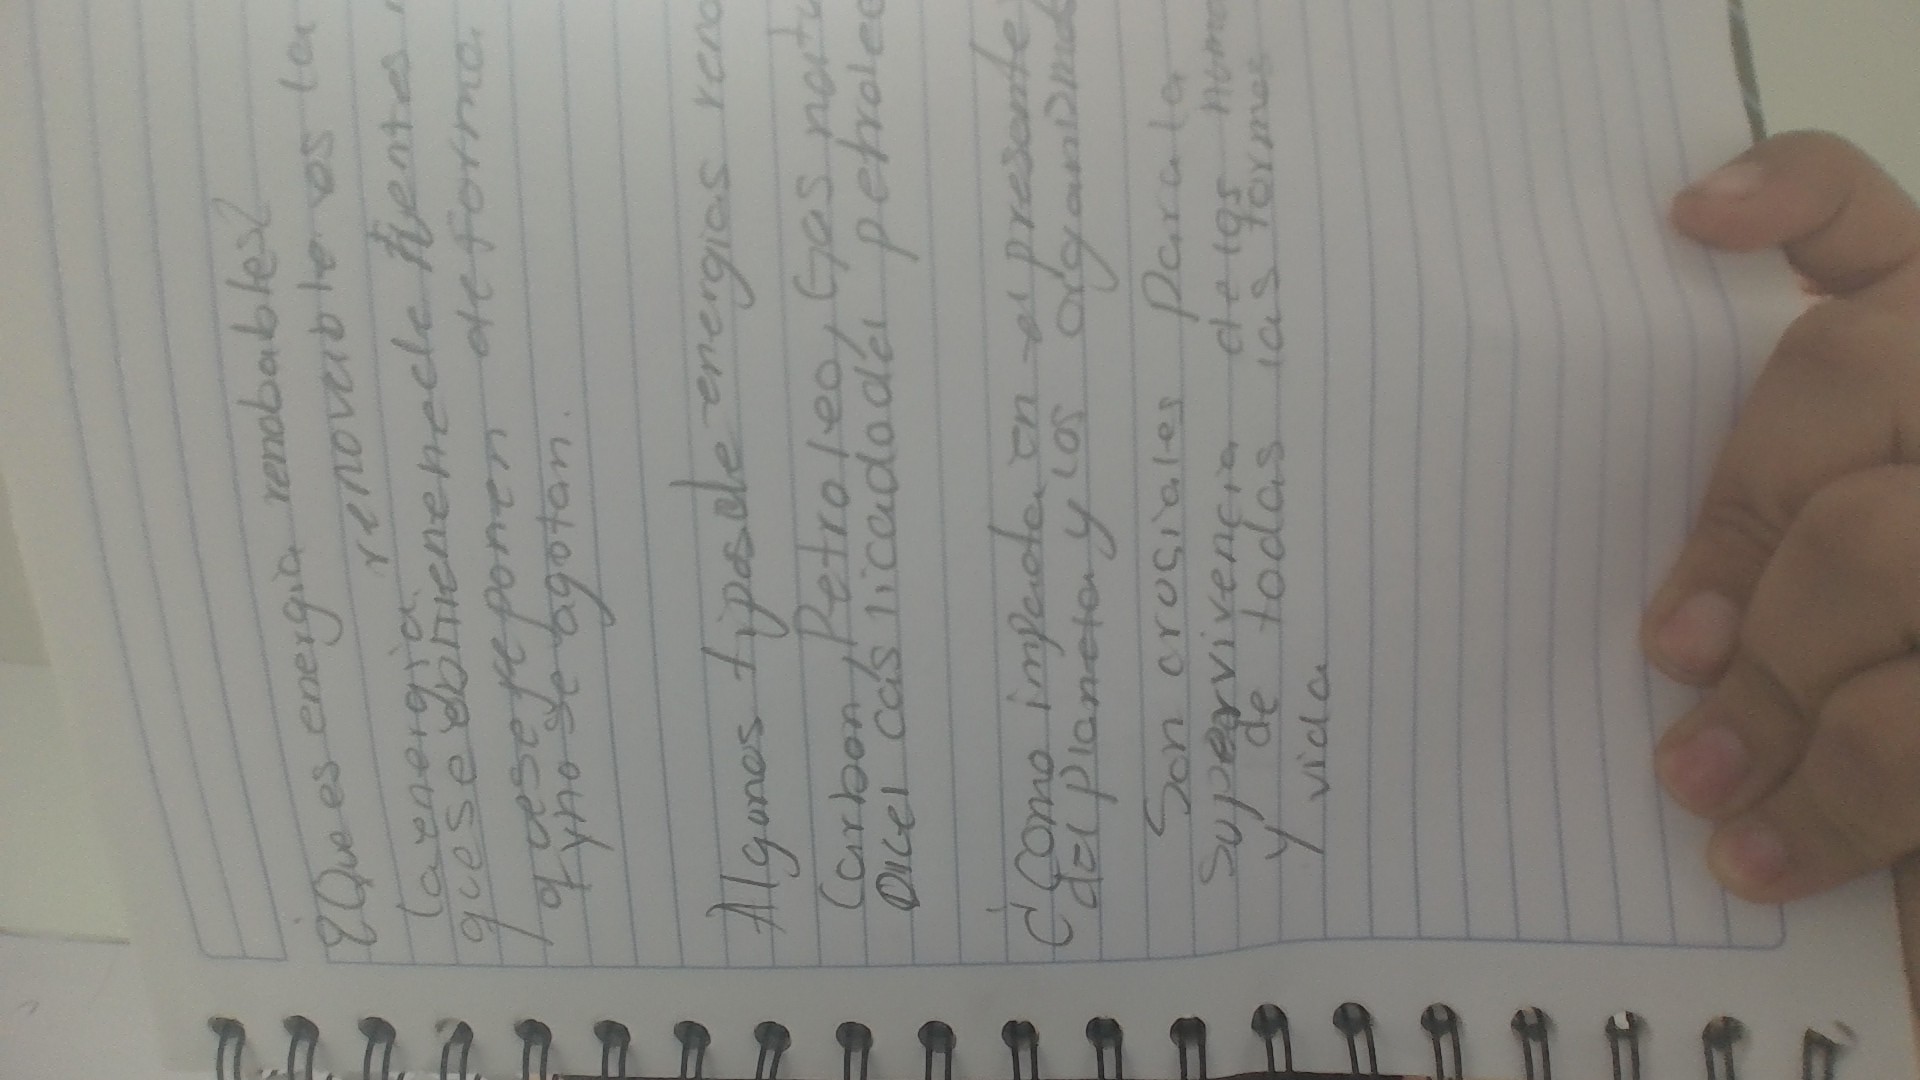 ¿Que es energia renobables?
La energia renovable os la
que se obtiene de fientes
que se reponen de forma
y no se agotan.
Algunos tipos de energias reno
Carbon, Petroleo, Gas natu
Dicel Gas licadodel petroleo
¿Como impacta en el presente
del planeta y los organismos
Son crusiales para la
supervivencia de los huma
y de todas las formas
vida